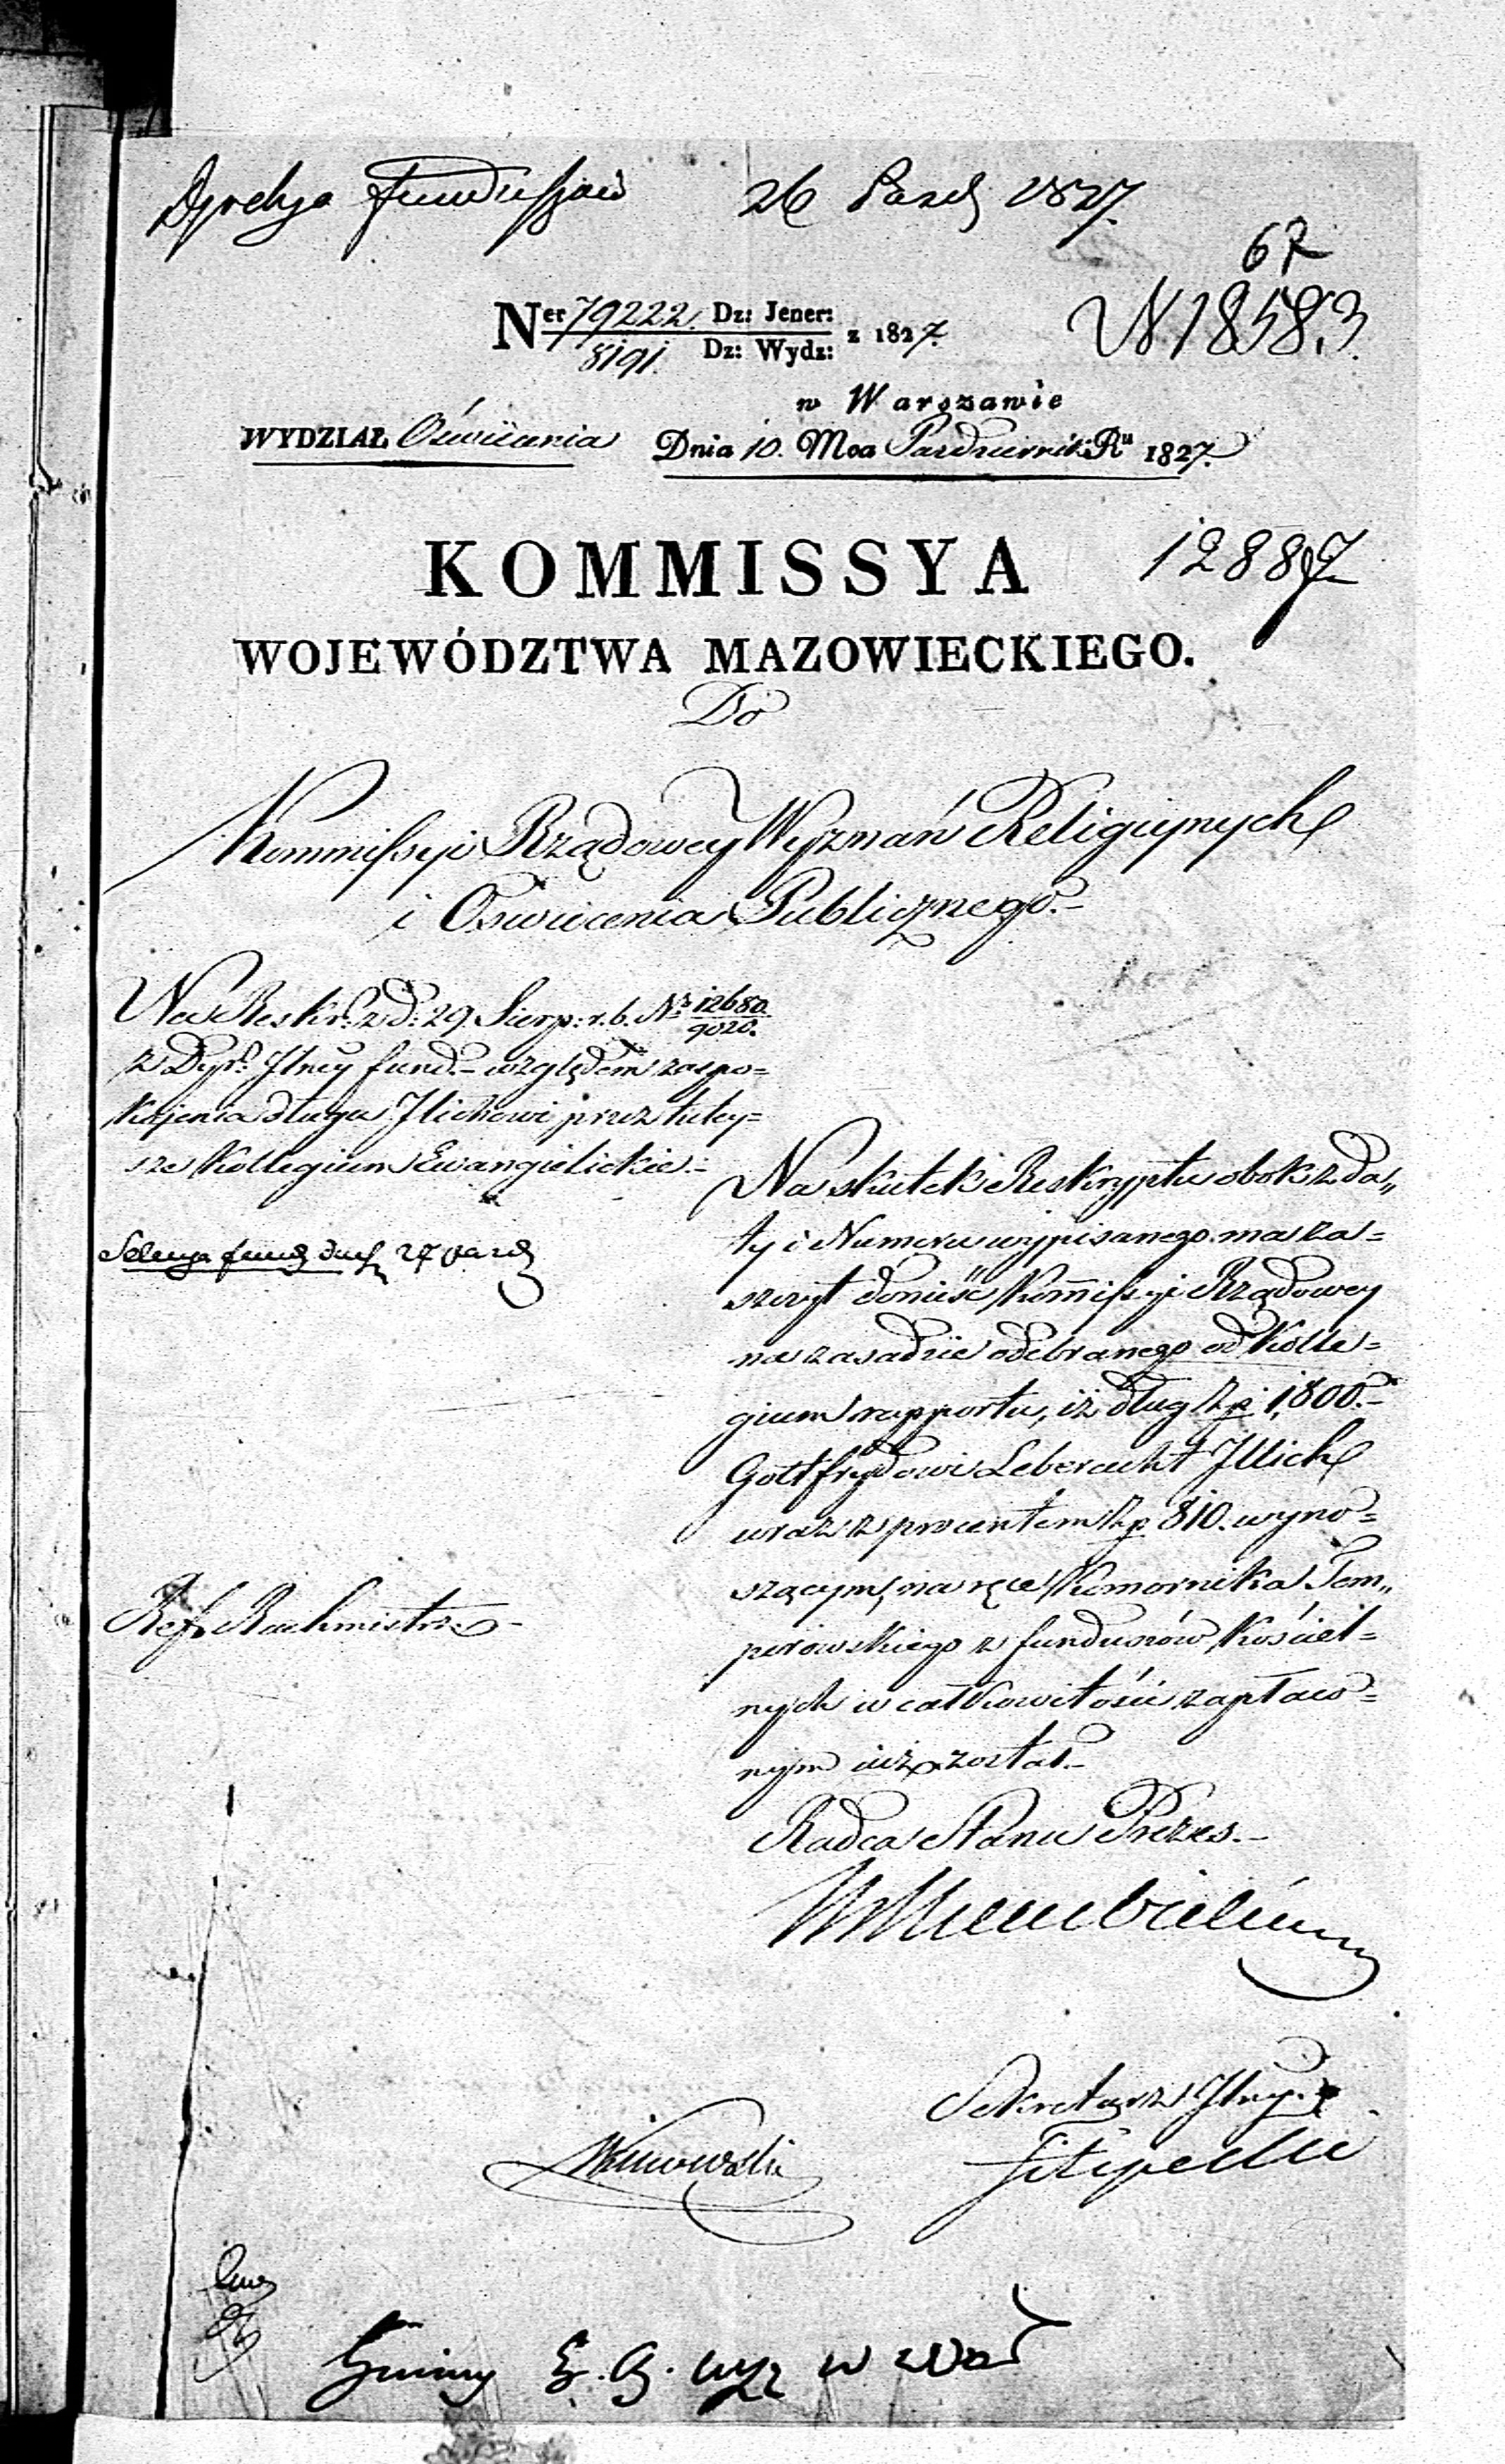 Dyrekcya Funduszów 26 Paźd 1827.
67
N 18583.
Ner 79222. Dz: Jener: z 1827.
8191. Dz: Wydz:
w Warszawie
WYDZIAŁ Oświecenia Dnia 10. Mca Pazdziernik: Ru 1827.
KOMMISSYA
12887
WOJEWÓDZTWA MAZOWIECKIEGO.
Do
Kommissyi Rządowey Wyznań Religiynych
i Oswiecenia Publicznego.-
Na Reskr: z d: 29. Sierp: r. b. Nr 12680.
9020.
z Dyr: Jlney fund.- względem zaspo=
kojenia długu Jllichowi przez tutey=
sze Kollegium Ewangielickie.-
Na skutek Reskryptu obok z da„
ty i Numeru wypisanego. ma za=
szczyt donieść Kommissyi Rządowey
na zasadzie odebranego od Kolle=
gium rapportu, iż dług Zp 1,800.-
Gottfrydowi Leberecht Jllich
wraz z procentem Zp 810. wyno=
szącym, na ręce Komornika Tem„
perowskiego z funduszów Kościel=
nych w całkowitości zapłaco=
nym iuż został.-
Sekcya fund duch 27 paźd
Ref. Rachmistrz
Radca Stanu Prezes.-
Sekretarz Jlny.
Filipecki
Gminy E. A. wyz w War